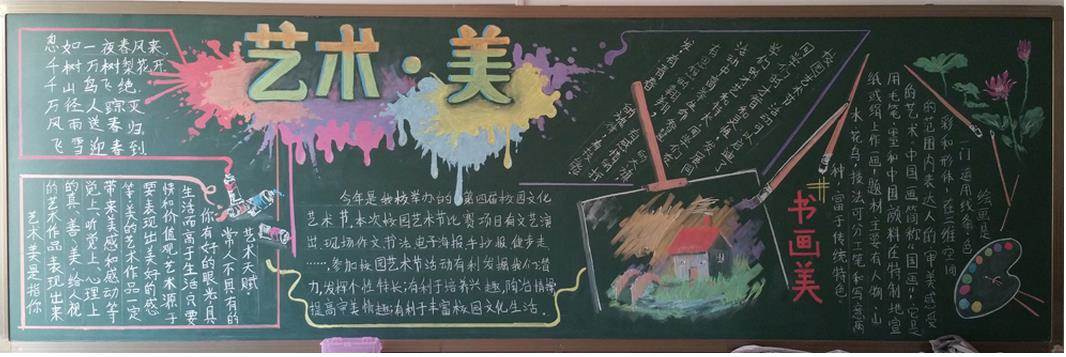 艺术·美
忽如一夜春风来,
千树万树梨花开
千山鸟飞绝,
万径人踪灭
风雨送春归,
飞雪迎春到
艺术天赋:
常人不具有的
你有好的眼光,具
生活而高于生活,只要
情和价值观,艺术源于
要表现出美好的感
等,美的艺术作品一定
带来美感和感动等
觉上、听觉上、心理上
的真、善、美,给人视
的艺术作品表现出来
艺术美是指你
今年是我校举办的第四届校园文化
艺术节,本次校园艺术节比赛项目有文艺演
出、现场作文、书法、电子海报、手抄报、健步走
……,参加校园艺术节活动有利发掘我们潜
力,发挥个性特长;有利于培养兴趣,陶冶情操
提高审美情趣;有利于丰富校园文化生活。
书画美
绘画是
一门运用线条、色
彩和形体,在二维空间
的范围内表达人的审美感受
的艺术。中国画简称"国画",它是
用毛笔、墨和中国颜料在特制地宣
纸或绢上作画,题材主要有人物、山
水、花鸟,技法可分工笔和写意两
种,富于传统特色。